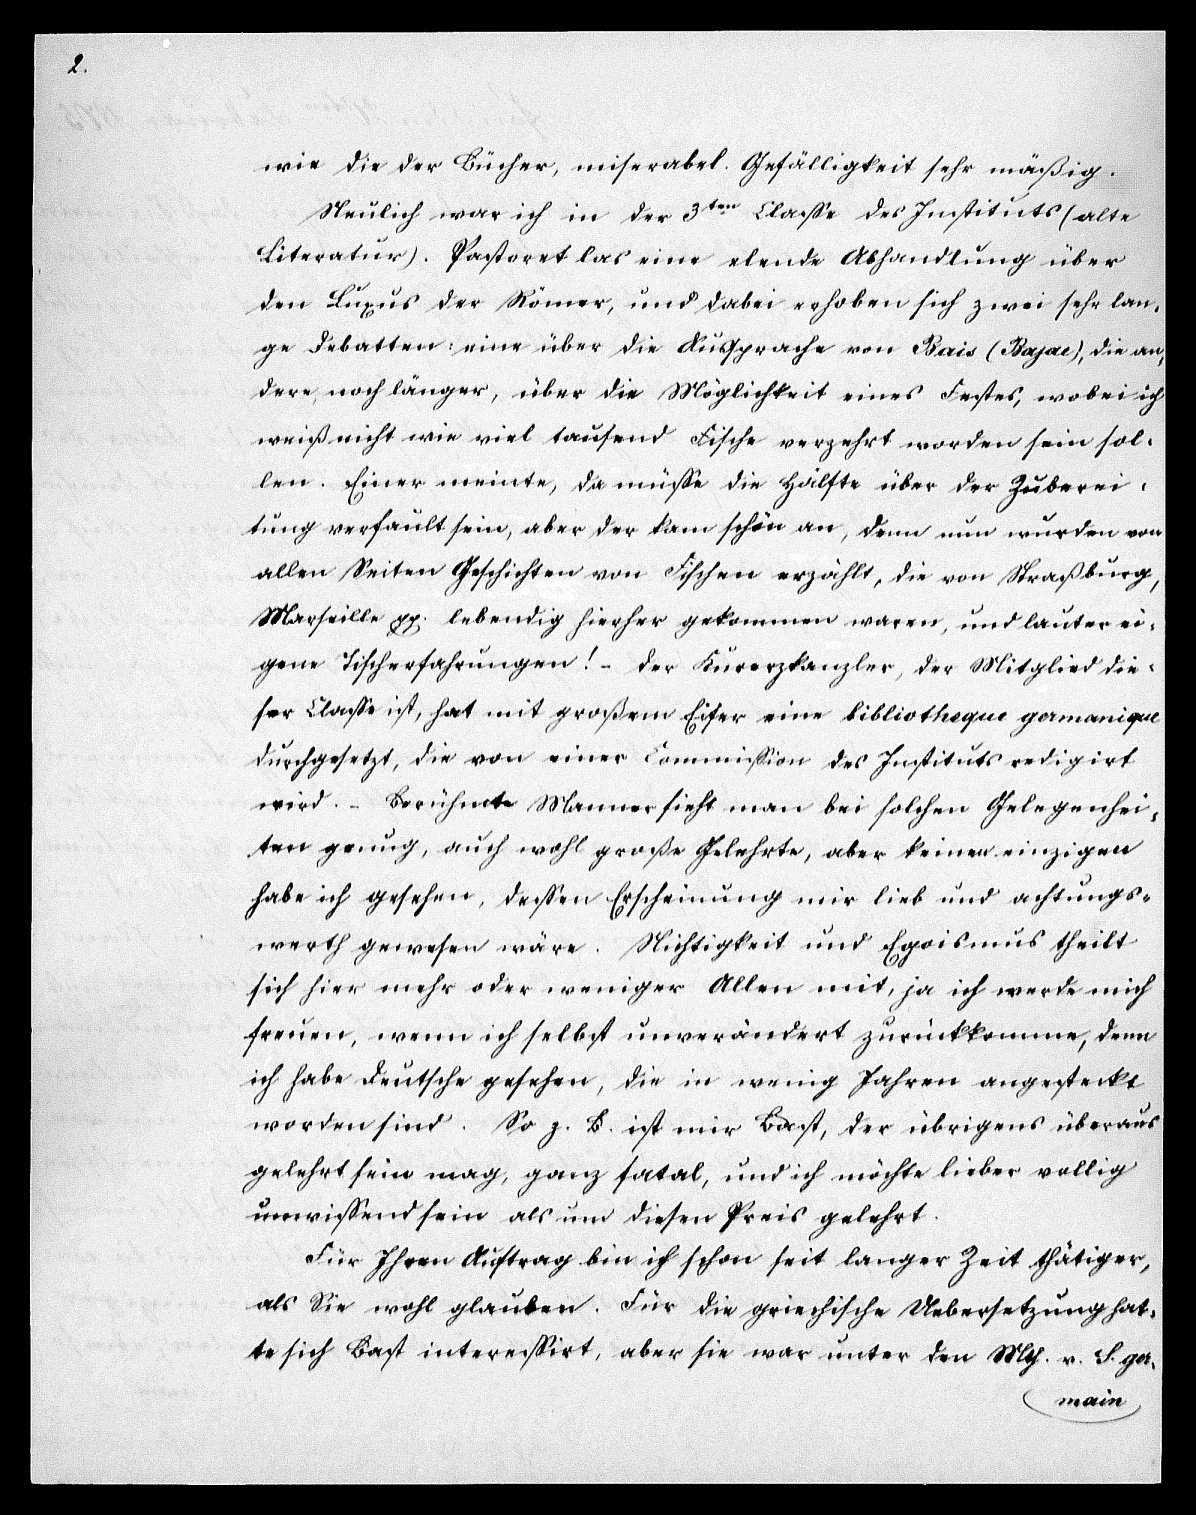 2.
wie die der Bücher, miserabel. Gefälligkeit sehr mäßig.
Neulich war ich in der 3ten Classe des Instituts (alte
Literatur). Pastoret las eine elende Abhandlung über
den Luxus der Römer, und dabei erhoben sich zwei sehr lan-
ge Debatten: eine über die Aussprache von Bais (Bajae), die an-
dere, noch länger, über die Möglichkeit eines Festes, wobei ich
weiß nicht wie viel tausend Fische verzehrt worden sein sol-
len. Einer meinte, da müsse die Hälfte über der Zuberei-
tung verfault sein, aber der kam schön an, denn nun wurden von
allen Seiten Geschichten von Fischen erzählt, die von Straßburg,
Marseille pp. lebendig hierher gekommen waren, und lauter ei-
gene Tischerfahrungen! – Der Kurerzkanzler, der Mitglied die-
ser Classe ist, hat mit großem Eifer eine bibliotheque germanique
durchgesetzt, die von einer Commission des Instituts redigirt
wird. – Berühmte Männer sieht man bei solchen Gelegenhei-
ten genug, auch wohl große Gelehrte, aber keinen einzigen
habe ich gesehen, dessen Erscheinung mir lieb und achtungs-
werth gewesen wäre. Nichtigkeit und Egoismus theilt
sich hier mehr oder weniger Allen mit, ja ich werde mich
freuen, wenn ich selbst unverändert zurückkomme, denn
ich habe Deutsche gesehen, die in wenig Jahren angesteckt
worden sind. So z. B. ist mir Bast, der übrigens überaus
gelehrt sein mag, ganz fatal, und ich möchte lieber völlig
unwissend sein als um diesen Preis gelehrt.
Für Ihren Auftrag bin ich schon seit langer Zeit thätiger,
als Sie wohl glauben. Für die griechische Uebersetzung hat-
te sich Bast interessirt, aber sie war unter den v. S. ger-
main